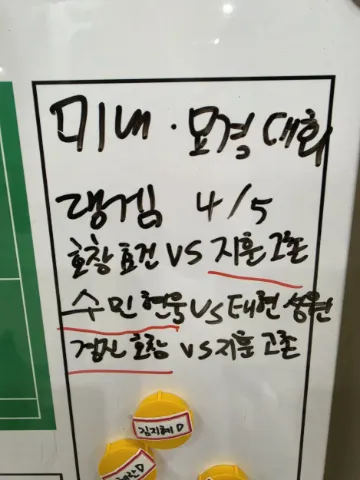 미내·모경대회
랭게임 4/5
호창 효건 VS 지훈 고존
수민 현욱 VS 태현 승원
겸진 호창 VS 지훈 고존
김지혜 D